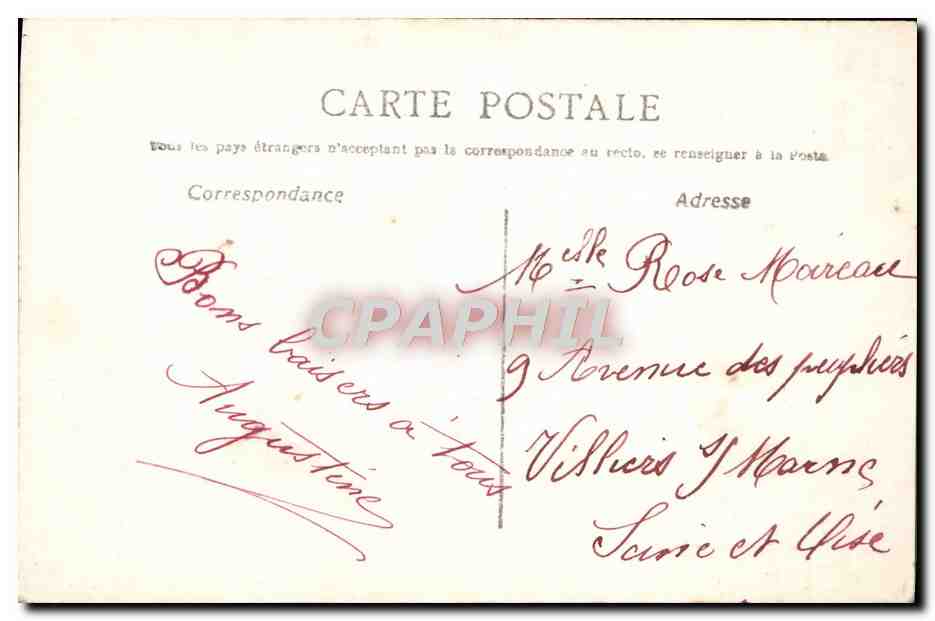 CARTE POSTALE
Tous les pays étrangers n'acceptent pas la correspondance au recto, se renseigner à la Poste
Correspondance
Bons baisers à tous
Augustine
Adresse
Melle Rose Moreau
9 Avenue des peupliers
Villiers s/ Marne
Seine et Oise
CPAPHIL